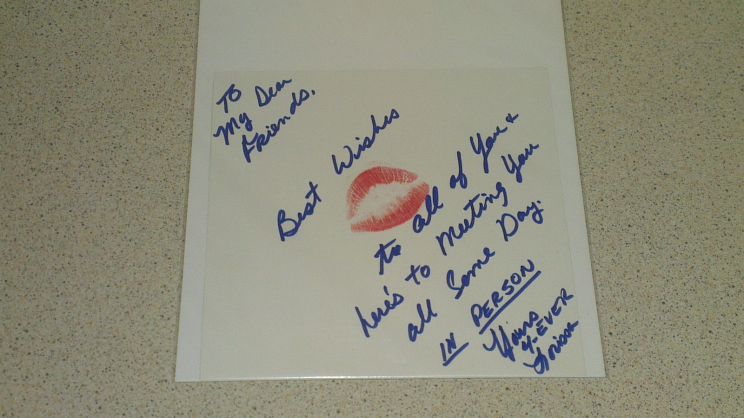 To
My Dear
Friends,
Best Wishes
to all of You &
here's to Meeting You
all Some Day.
IN PERSON
Yours
4-EVER